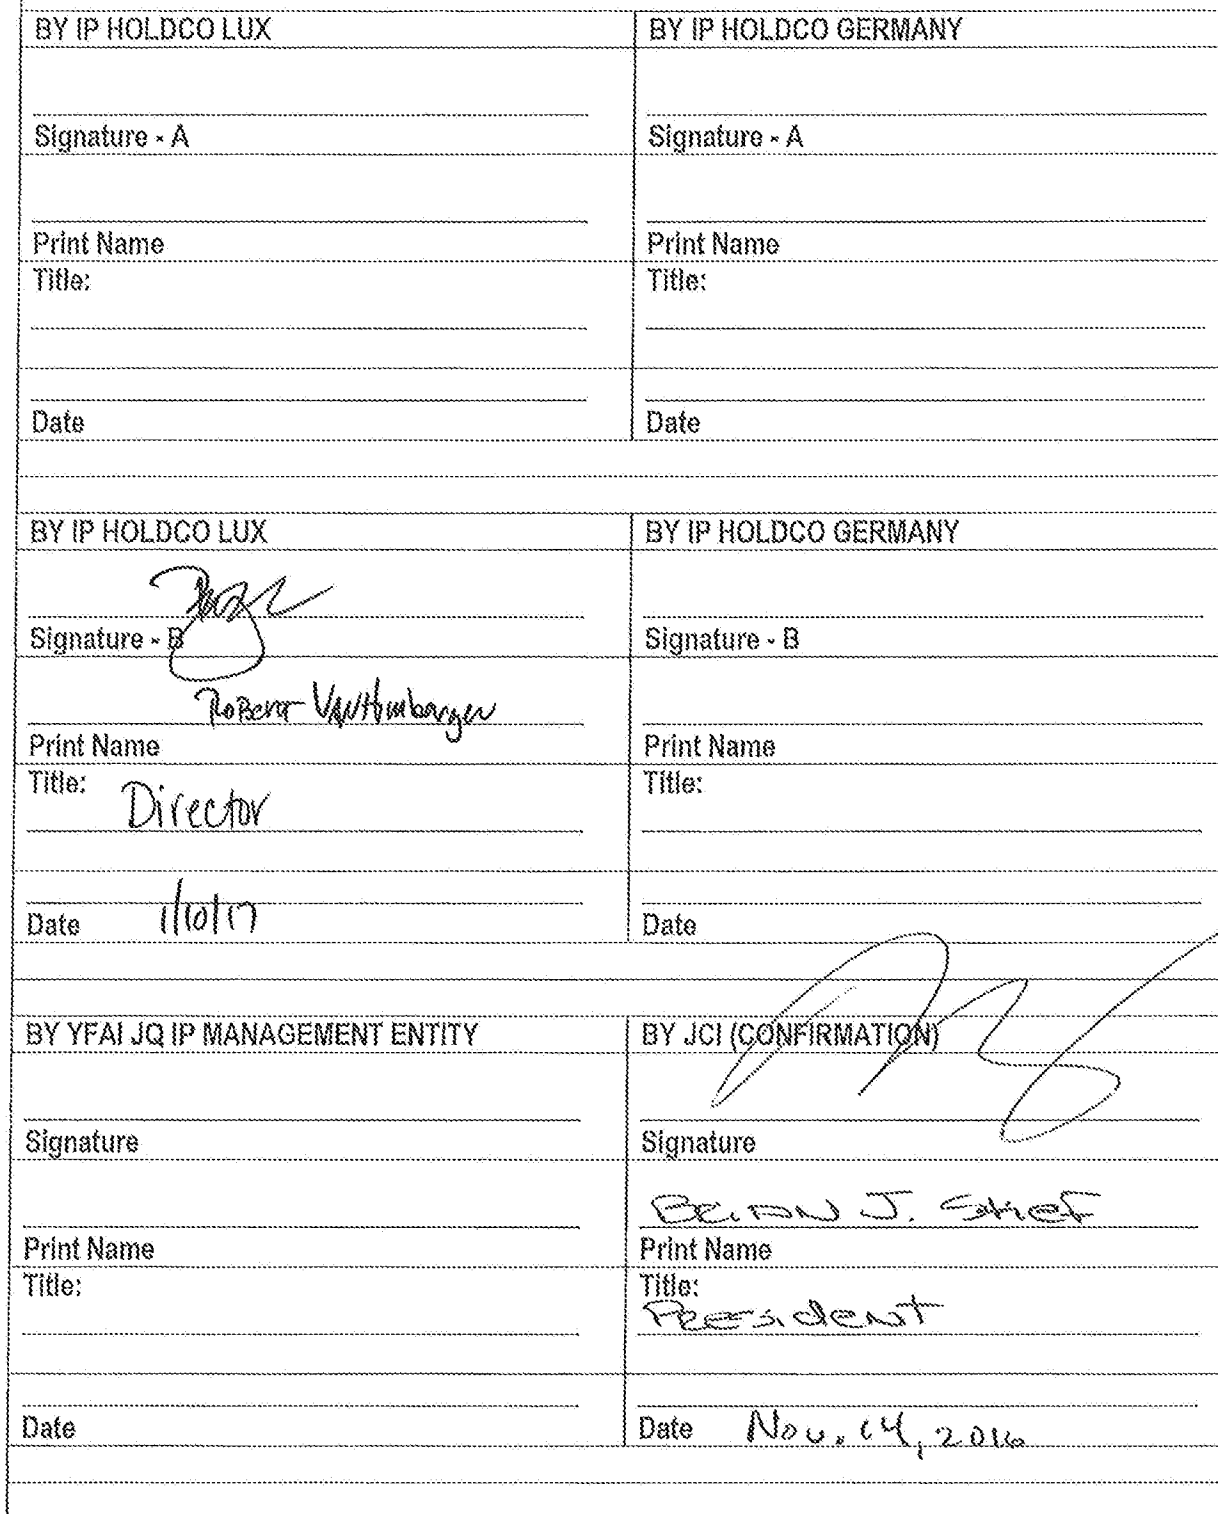 BY IP HOLDCO LUX BY IP HOLDCO GERMANY
Signature - A Signature - A
Print Name Print Name
Title: Title:
Date Date
BY IP HOLDCO LUX BY IP HOLDCO GERMANY
Signature - B Signature - B
Robert VanHimbergen
Print Name Print Name
Title: Director Title:
Date 1/10/17 Date
BY YFAI JQ IP MANAGEMENT ENTITY BY JCI (CONFIRMATION)
Signature Signature
Brian J. Stief
Print Name Print Name
Title: Title:
President
Date Date Nov. 14, 2016